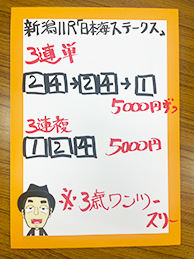 新潟11R「日本海ステークス」
3連単
2 4→2 4→1
5000円ずつ
3連複
1 2 4 5000円
※3歳ワンツー
スリー